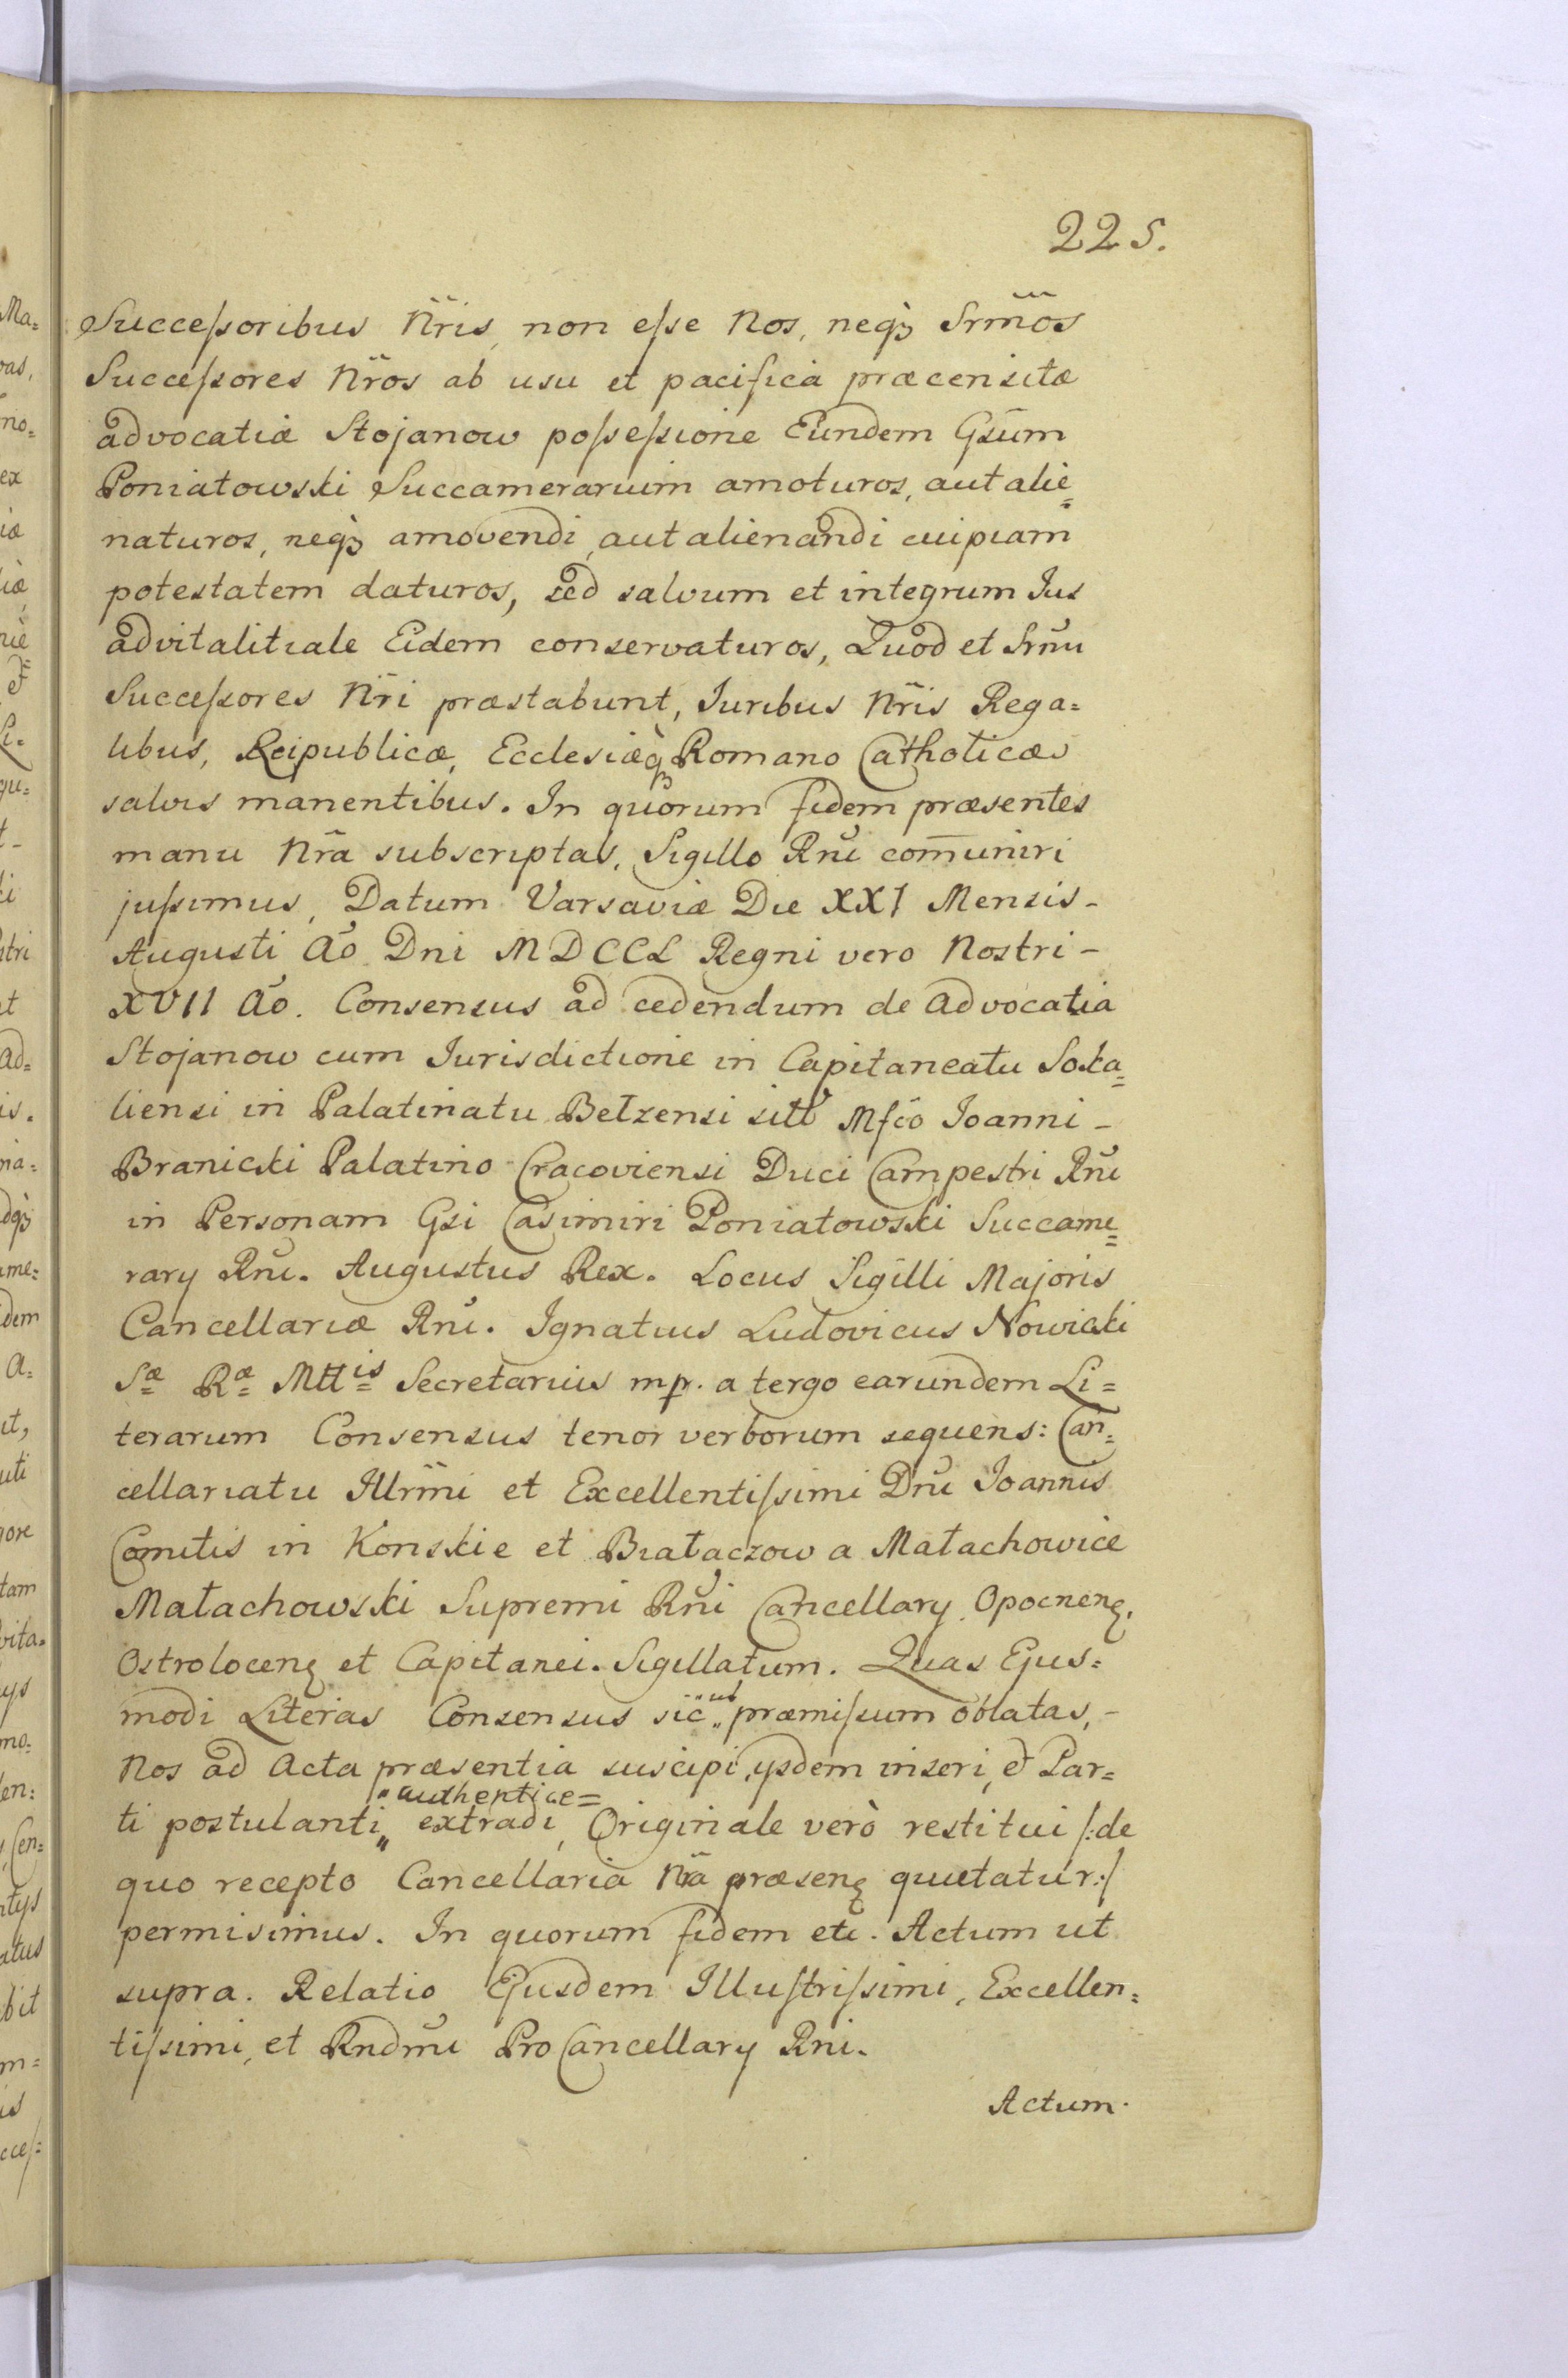 225.
Succeſsoribus Nr̃is, non eſse Nos, neq₃ Srm̃os
Succeſsores Nr̃os ab usu et pacifica præcensitæ
advocatiæ Stojanow poſseſsione Eundem Gsum
Poniatowski Succamerarium amoturos, aut alie=
naturos, neq₃ amovendi, aut alienandi cuipiam
potestatem daturos, sed salvum et integrum Jus
advitalitiale Eidem conservaturos, Quod et Srmi
Succeſsores Nr̃i præstabunt, Juribus Nr̃is Rega=
libus, Reipublicæ, Ecclesiæq₃ Romano Catholicæ
salvis manentibus. In quorum fidem præsentes
manu Nr̃a subscriptas, Sigillo Rni com̃uniri
juſsimus, Datum Varsaviæ Die XXI Mensis -
Augusti Ao Dni MDCCL Regni vero Nostri -
XVII Ao. Consensus ad cedendum de Advocatia
Stojanow cum Jurisdictione in Capitaneatu Soka=
liensi in Palatinatu Betzensi sitt Mfco Joanni -
Branicki Palatino Cracoviensi Duci Campestri Rni
in Personam Gsi Casimiri Poniatowski Succame=
rary Rni. Augustus Rex. Locus Sigilli Majoris
Cancellariæ Rni. Ignatius Ludovicus Nowicki
Sæ Ræ Mttis Secretarius mp. a tergo earundem Li=
terarum Consensus tenor verborum sequens: Can=
cellariatu Illrm̃i et Excellentiſsimi Dni Joannis
Comitis in Konskie et Białaczow a Małachowice
Małachowski Supremi Rni Cancellary, Opocnen̨.
Ostrolocen̨ et Capitanei. Sigillatum. Quas Ejus=
modi Literas Consensus sic „ut præmiſsum oblatas, -
Nos ad Acta præsentia suscipi, ysdem inseri, et Par=
ti postulanti „authentice= extradi, Originale verò restitui /:de
quo recepto Cancellaria Nr̃a præsen̨ quietatur:/
permisimus. In quorum fidem etc. Actum ut
supra. Relatio Ejusdem Illuſtriſsimi, Excellen=
tiſsimi, et Rndmi ProCancellary Rni.
Actum.